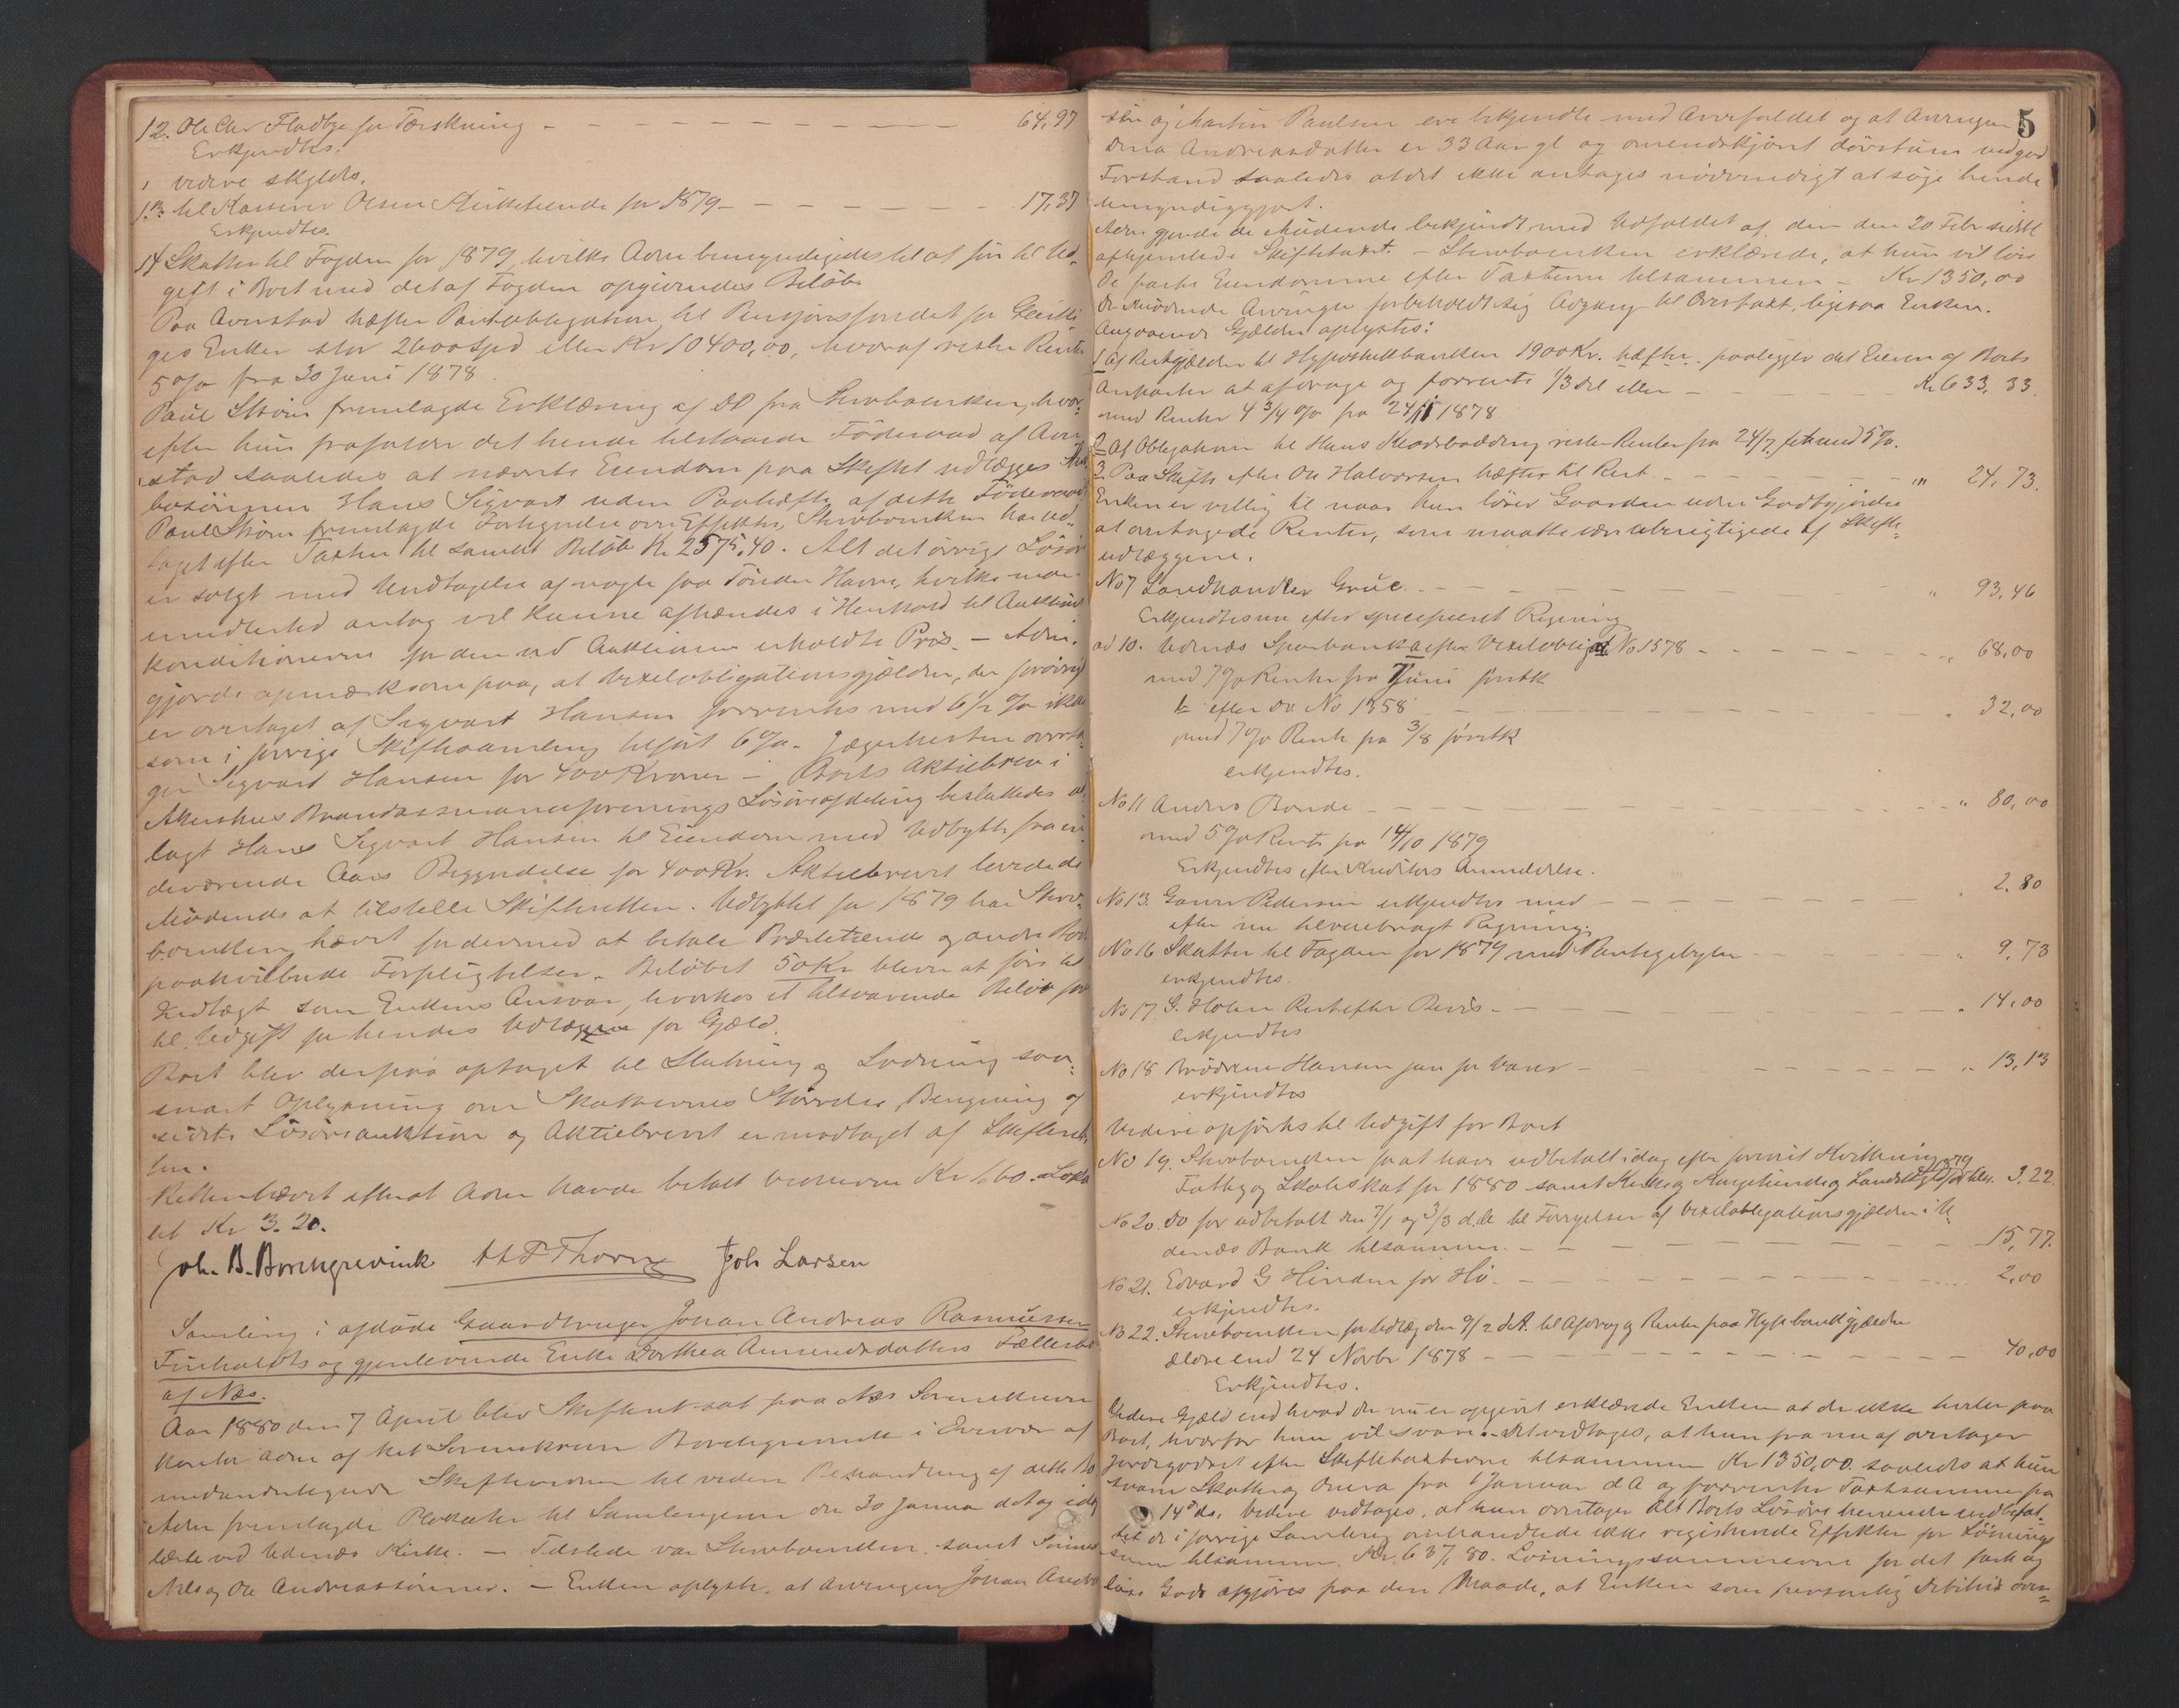 12. Ole Chr Fladbye for Tærskning - 64,97
Erkjendtes.
videre skyldes.
13. til Kasserer Olsen Skattetiende for 1879 - 17,37
Erkjendtes
14 Skatter til Fogden for 1879, hvilke Adm bemyndigedes til at føre til Ud-
gift i Boet med det af Fogden opgivendes Beløb.
Paa Averstad hæfter Pantobligation til Pensjonsfondet for Geistli
ges Enker stor 2600 Spd eller Kr 10400,00, hvoraf rester Rente
5 % fra 30 Juni 1878
Paul Strøm fremlagde Erklæring af DD fra Stervboenken, hvor-
efter hun frafalder det hende tilstaaede Føderaad af Aver
stad saaledes at nævnte Eiendom paa Skiftet udlægges Sterv
bosønnen Hans Sigvart uden Paahæfte af dette Føderaad
Paul Strøm fremlagde Fortegnelse over Effekter, Stervboenken har ud-
taget efter Taxten til samlet Beløb Kr 2575,40. Alt det øvrige Løsøre
er solgt med Undtagelse af nogle faa Tønder Havre, hvilke man
imidlertid antog vil kunne afhændes i Henhold til Auktions
konditionerne for den ved Auktionen erholdte Pris. - Adm.
gjorde opmærksom paa, at Vexelobligationsgjælden, der forøvrigt
er overtaget af Sigvart Hansen forrentes med 6 1/2 % ikke
som i forrige Skiftesamling tilført 6 %. Jægerhesten overta-
ger Sigvart Hansen for 400 Kroner - Boets Aktiebrev i
Akershus Brandassuranceforenings Løsøreafdeling besluttedes ud
lagt Hans Sigvart Hansen til Eiendom med Udbytte fra in
deværende Aars Begyndelse for 400 Kr. Aktiebrevet lovede de
Mødende at tilstille Skifteretten. Udbyttet for 1879 har Sterv-
boenken hævet for dermed at betale Præstetiende og andre Boet
paahvilende Forpligtelser. Beløbet 50 Kr bliver at føre til
Indtægt som Enkens Ansvar, hvorhos et tilsvarende Beløb føres
til Udgift for hendes Udlæggene for Gjæld.
Boet blev derpaa optaget til Slutning og Lodning saa-
snart Oplysning om Skatternes Størrelse, Beregning og
sidste Løsøreauktion og Aktiebrevet er modtaget af Skifteret
ten.
Retten hævet efterat Adm havde betalt Vidnerne Kr 1,60. Loka
let Kr 3.20.
Joh. B. Borchgrevink H F Thorn Joh Larsen
Samling i afdøde Gaardbruger Johan Andreas Rasmussen
Finholdts og gjenlevende Enke Dorthea Amundsdatters Fællesbo
af Næs.
Aar 1880 den 7 April blev Skifteret sat paa Næs Sorenskriver
kontor adm af kst Sorenskriver Borchgrevink i Overvær af
medunderskrevne Skiftevidner til videre Behandling af dette Bo
Adm fremlagde Plakater til Samlingerne den 30 Januar dA og idag
læste ved Udenæs Kirke. - Tilstede var Stervboenken samt Sønnerne
Nils og Ole Andreassønner. - Enken oplyste, at Arvingen Johan Andrea
5
søn og Martin Paulsen ere bekjendte med Arvefaldet og at Arvingen
Dina Andreasdatter er 33 Aar gl og omendskjønt døvstum ved god
Forstand saaledes at det ikke antages nødvendigt at søge hende
umyndiggjort.
Adm gjorde de Mødende bekjendt med Udfaldet af den den 20 Febr sidstl
afhjemlede Skiftetaxt. - Stervboenken erklærede, at hun vil løse
de faste Eiendomme efter Taxterne tilsammen - Kr 1350,00
De mødende Arvinger forbeholdt sig Adgang til Overtaxt, ligesaa Enken.
Angaaende Gjælden oplystes:
1 Af Restgjælden til Hypothekbanken 1900 Kr. hæfter. paalegges det Eieren af Boets
Anparter at afdrage og forrente 1/3 Del eller - Kr 633,33.
med Renter 4 3/4 % fra 24/11 1878
2 Af Obligation til Hans rester Renter fra 24/7 med 5 %.
3 Paa Skifte efter Ole Halvorsen hæfter til Rest - " 24,73.
Enken er villig til naar hun løser Gaarden uden Godtgjørelse
at overtage de Renter, som maatte være ubrigtigede af Skifte-
udlæggene.
No 7 Landhandler Grue. - " 93,46
Erkjendtes nu efter specificeret Regning
ad 10. Udenæs Sparebank a efter Vexelobligat No 1578 - " 68,00
med 7 % Renter fra 7 Juni førstk
b efter do. No 1358 - " 32,00
med 7 % Rente fra 3/8 førstk
erkjendtes.
No 11 Anders Bonde - " 80,00
med 5 % Rente fra 14/10 1879
Erkjendtes efter Kreditors Anmeldelse.
No 13. Guner Pedersen erkjendtes med - " 2.80
efter nu tilveiebragt Regning.
No 16 Skatter til Fogden for 1879 med Pantegebyr - " 9,73
erkjendtes.
No 17 G. Holm Rest efter Bevis. - " 14,00
erkjendtes
No 18 Brødrene Hansen jun for Varer - " 13,13
erkjendtes
Videre opførtes til Udgift for Boet
No 19. Stervboenken for at have udbetalt idag efter forevist Kvittering
Fattig og Skoleskat for 1880 samt Kirke og Kongetiende og Landskyld for 1879 tils. 3.22.
No 20. Do for udbetalt den 7/1 og 3/3 d.A. til Fornyelser af Vexelobligationsgjælden i U-
denæs Bank tilsammen. - 15,77.
No 21. Edvard G Hinden for Hø. - 2,00
erkjendtes.
No 22. Stervboenken for Udlæg den 9/2 d.A. til Afdrag og Renter paa Hypbankgjælden
ældre end 24 Novbr 1878 - 40,00
Erkjendtes.
Videre Gjæld end hvad der nu er opgivet erklærede Enken at der ikke hviler paa
Boet, hvorfor hun vil svare. - Det vedtages, at hun fra nu af overtager
Jordegodset efter Skiftetaxterne tilsammen Kr 1350,00. saaledes at hun
svarer Skatter og Onera fra 1 Januar d A og forrenter Taxtsummen fra
14 ds. Videre vedtages, at hun overtager Alt Boets Løsøre herunder indbefat-
tet de i forrige Samling omhandlede ikke registrerede Effekter for Løsnings
sum tilsammen Kr. 637,80. Løsningssummerne for det faste og
løse Gods afgjøres paa den Maade, at Enken som personlig Debitrix over-